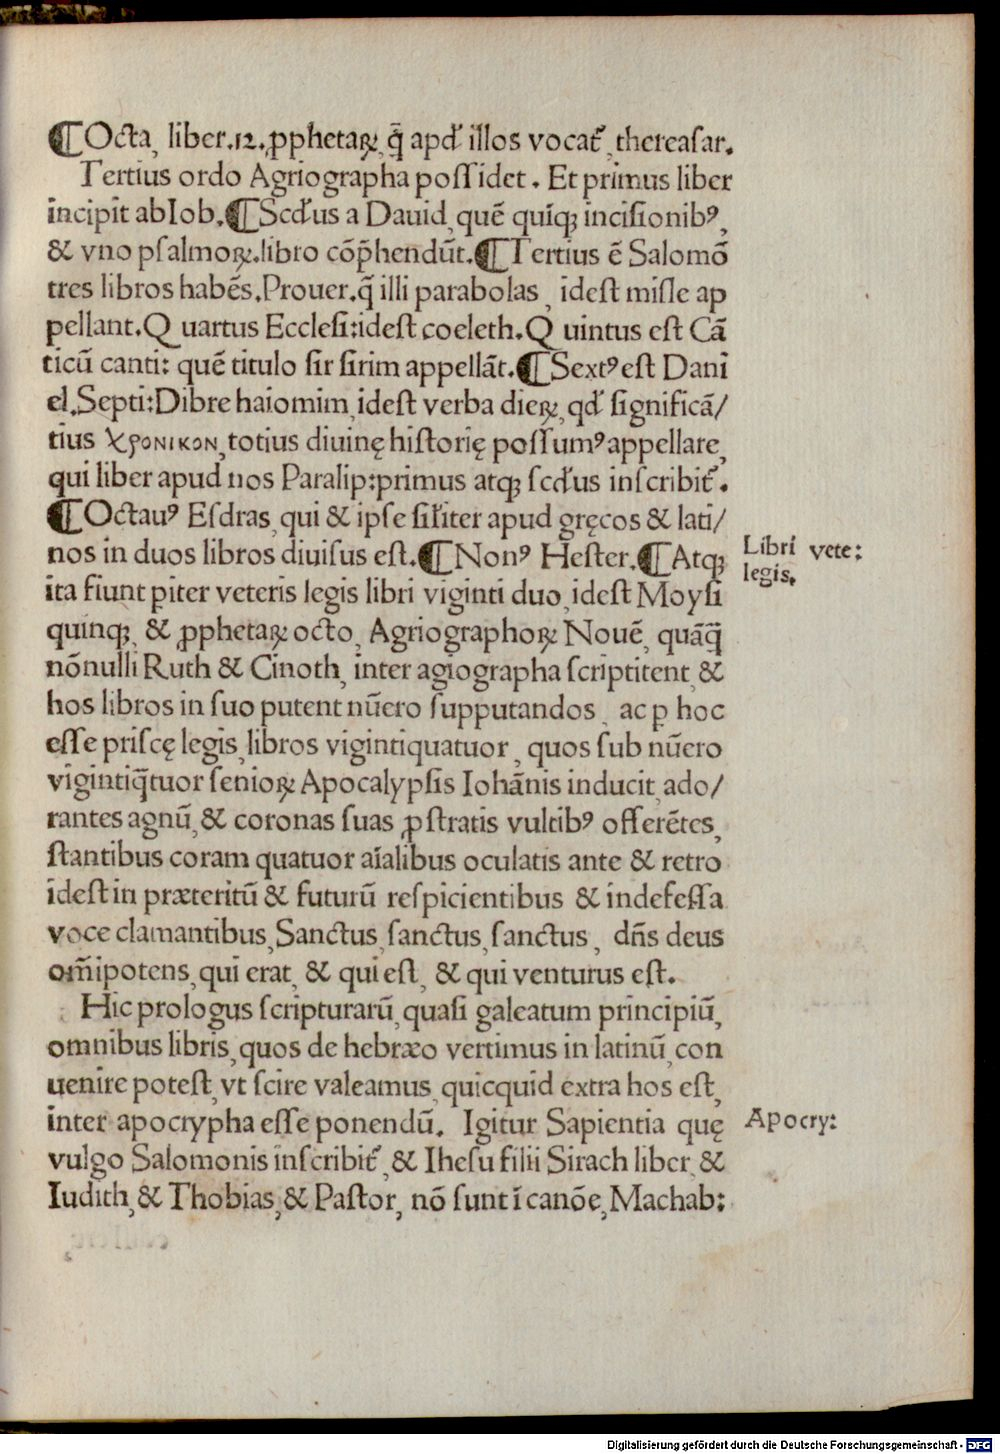 ¶Octa, liber.12.ꝓphetaꝝ, q̄ apđ illos vocat᷑, thereaſar.
Tertius ordo Agriographa poſſidet. Et primus liber
incipit ab Iob. ¶Scđus a Dauid, quē quinqꝫ inciſionibꝰ,
& vno pſalmoꝝ.libro cōp̄hendūt. ¶Tertius ē Salomō
tres libros habēs. Prouer.q̄ illi parabolas, ideſt miſle ap
pellant. Quartus Eccleſi:ideſt coeleth. Quintus eſt Cā
ticū canti: quē titulo ſir ſirim appellāt. ¶Sextꝰ eſt Dani
el. Septi:Dibre haiomim, ideſt verba dieꝝ, qđ ſignificā/
tius χρονικον, totius diuinę hiſtorię poſſumꝰ appellare,
qui liber apud nos Paralip:primus atqꝫ ſcđus inſcribit᷑.
¶Octauꝰ Eſdras, qui & ipſe ſiłiter apud gręcos & lati/
nos in duos libros diuiſus eſt. ¶Nonꝰ Heſter. ¶Atqꝫ
ita fiunt piter veteris legis libri viginti duo, ideſt Moyſi
quinqꝫ, & ꝓphetaꝝ octo, Agriographoꝝ Nouē, quāq̄
nōnulli Ruth & Cinoth, inter agiographa ſcriptitent, &
hos libros in ſuo putent nūero ſupputandos, ac ꝑ hoc
eſſe priſcę legis, libros vigintiquatuor, quos ſub nūero
vigintiq̄tuor ſenioꝝ Apocalypſis Iohānis inducit, ado/
rantes agnū, & coronas ſuas ꝓſtratis vultibꝰ offerētes,
ſtantibus coram quatuor aīalibus oculatis ante & retro
ideſt in præteritū & futurū reſpicientibus & indefeſſa
voce clamantibus, Sanctus, ſanctus, ſanctus, dn̄s deus
om̄ipotens, qui erat, & qui eſt, & qui venturus eſt.
Hic prologus ſcripturarū, quaſi galeatum principiū,
omnibus libris, quos de hebræo vertimus in latinū, con
uenire poteſt, vt ſcire valeamus, quicquid extra hos eſt,
inter apocrypha eſſe ponendū. Igitur Sapientia quę
vulgo Salomonis inſcribit᷑, & Iheſu filii Sirach liber, &
Iudith, & Thobias, & Paſtor, nō ſunt ī canōe, Machab:
Libri vete:
legis.
Apocry:
Digitalisierung gefördert durch die Deutsche Forschungsgemeinschaft - DFG